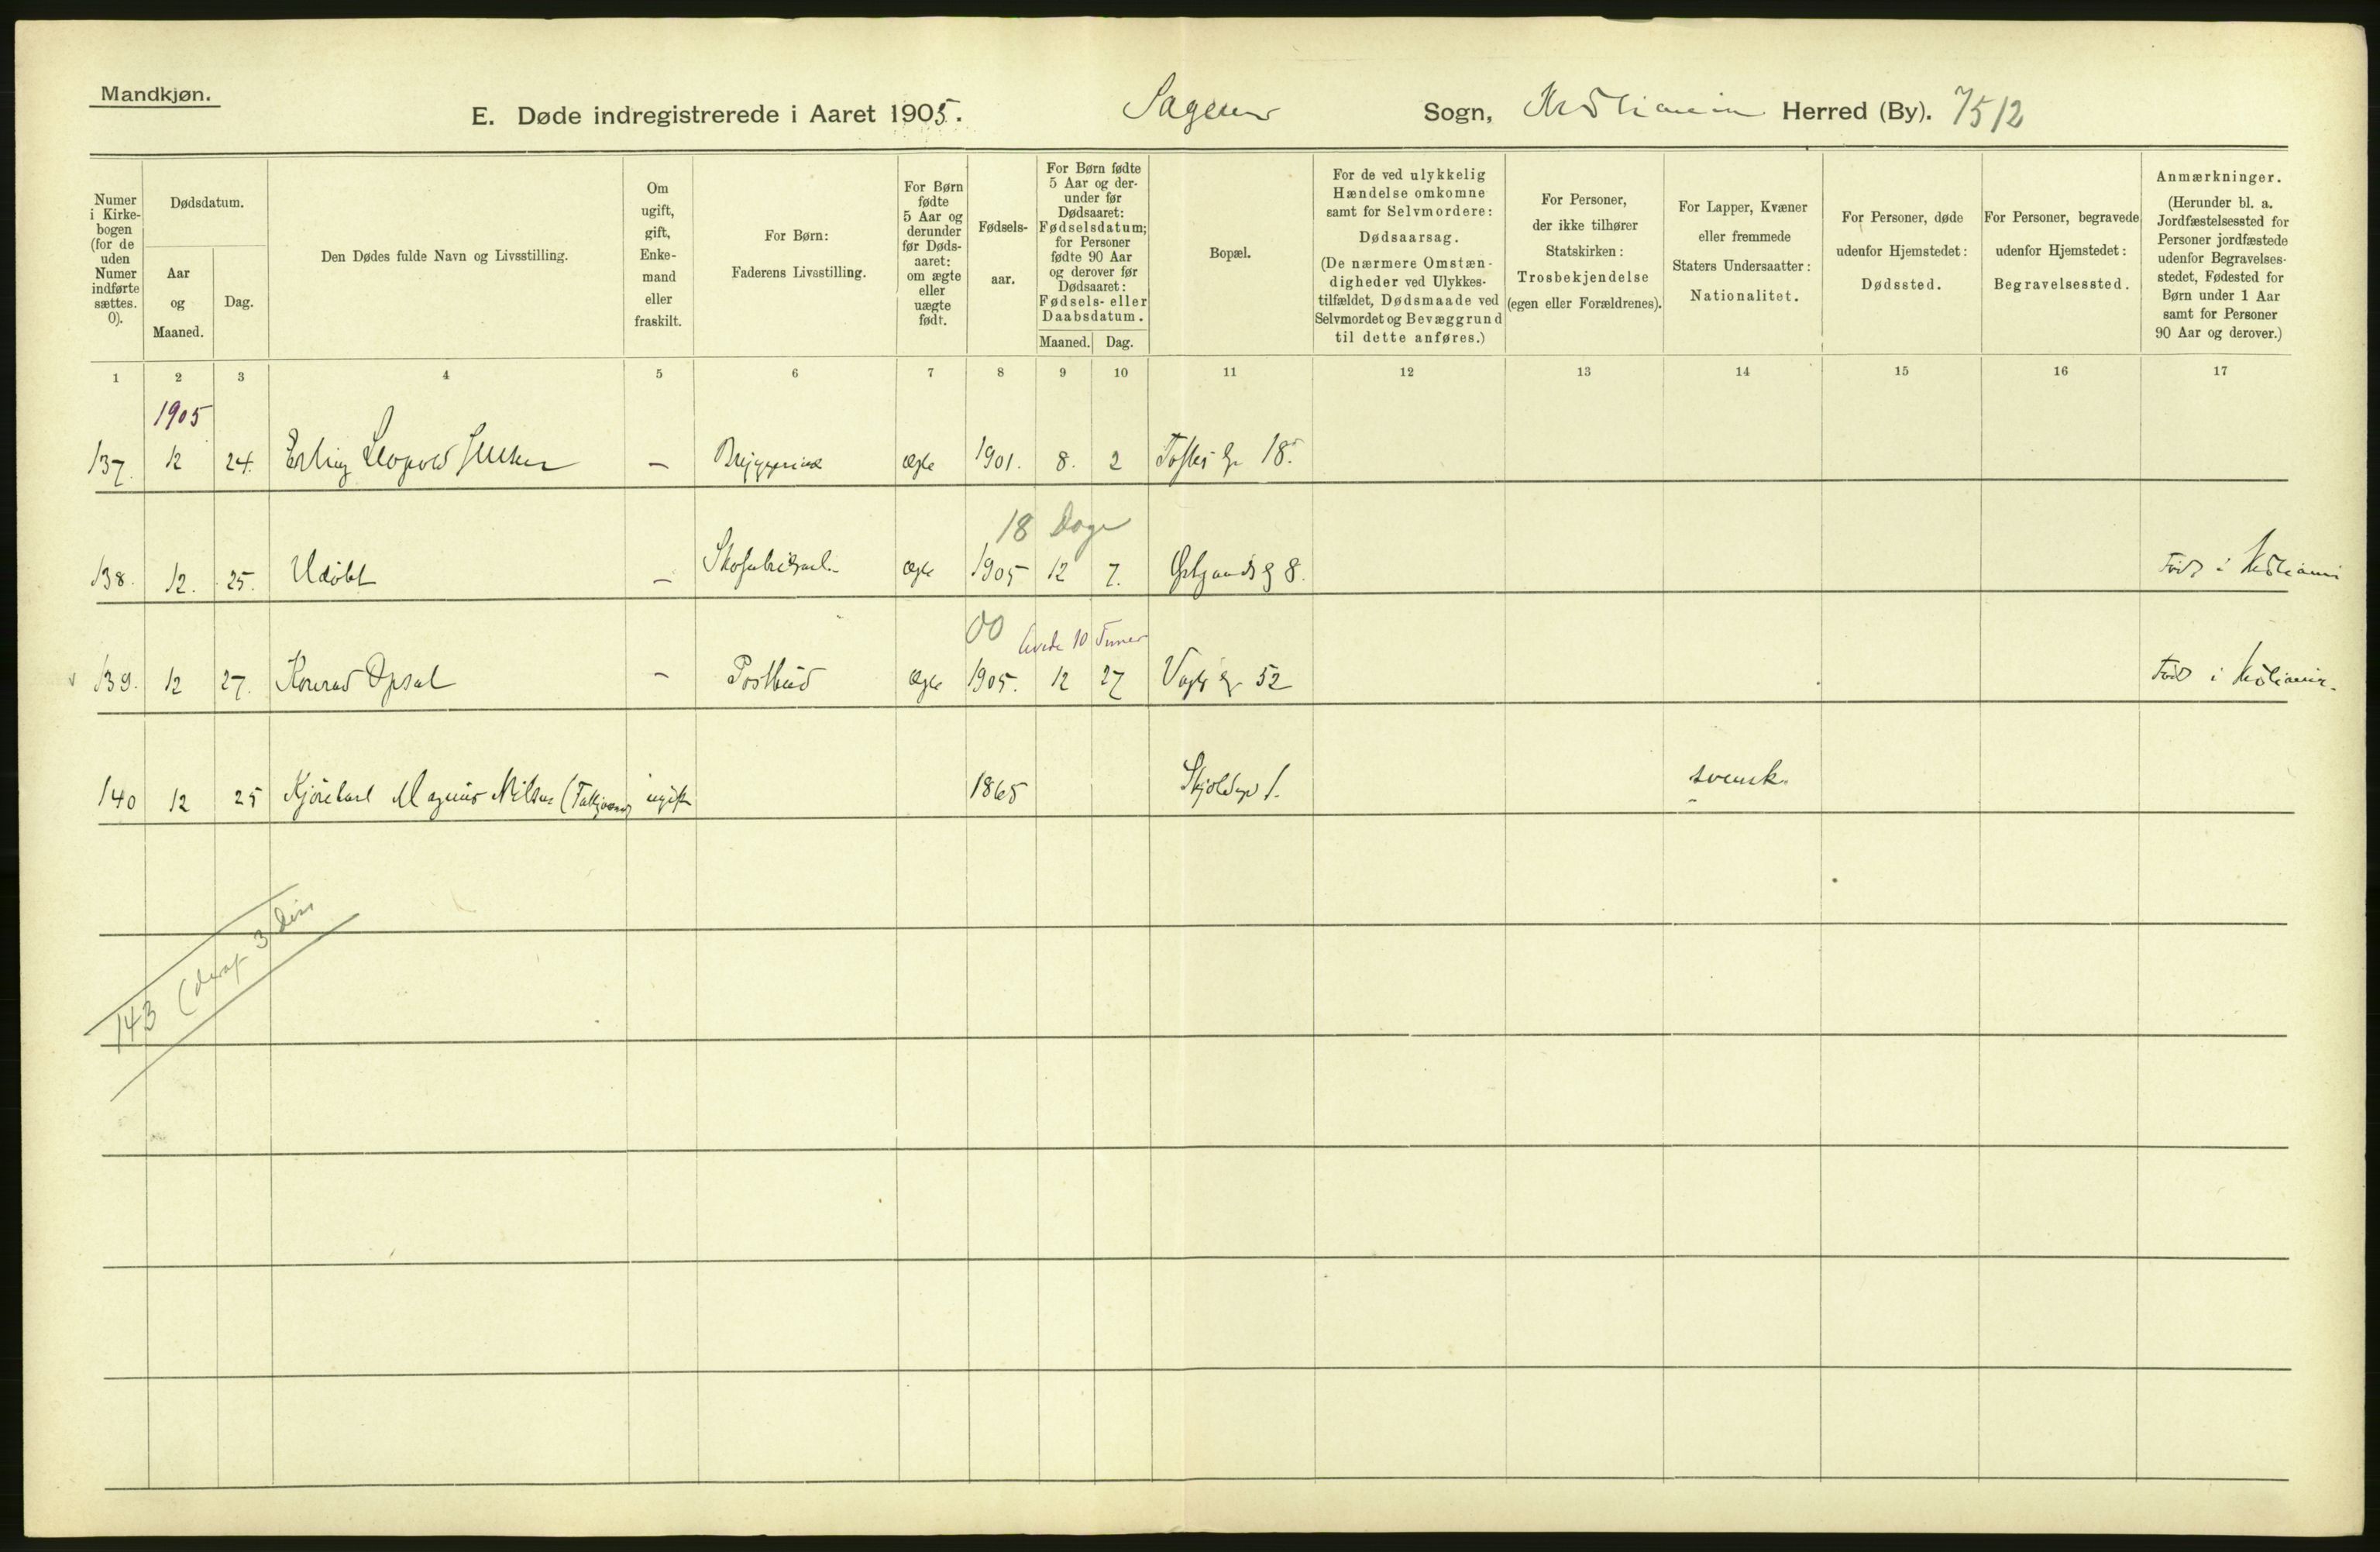 Mandkjøn.
E. Døde indregistrerede i Aaret 1905. Sagene Sogn, Kristiania Herred (By). 7512
Numer i Kirkebogen (for de uden Numer indførte sættes. 0).
Dødsdatum.
Aar og Maaned.
Dag.
Den Dødes fulde Navn og Livsstilling.
Om ugift, gift, Enkemand eller fraskilt.
For Børn: Faderens Livsstilling.
For Børn fødte 5 Aar og derunder før Dødsaaret: om ægte eller uægte født.
Fødselsaar.
For Børn fødte 5 Aar og derunder før Dødsaaret: Fødselsdatum; for Personer fødte 90 Aar og derover før Dødsaaret: Fødsels- eller Daabsdatum.
Maaned. Dag.
Bopæl.
For de ved ulykkelig Hændelse omkomne samt for Selvmordere: Dødsaarsag. (De nærmere Omstændigheder ved Ulykkestilfældet, Dødsmaade ved Selvmordet og Bevæggrund til dette anføres.)
For Personer, der ikke tilhører Statskirken: Trosbekjendelse (egen eller Forældrenes).
For Lapper, Kvæner eller fremmede Staters Undersaatter: Nationalitet.
For Personer, døde udenfor Hjemstedet: Dødssted.
For Personer, begravede udenfor Hjemstedet: Begravelsessted.
Anmærkninger. (Herunder bl. a. Jordfæstelsessted for Personer jordfæstede udenfor Begravelsesstedet, Fødested for Børn under 1 Aar samt for Personer 90 Aar og derover.)
1 2 3 4 5 6 7 8 9 10 11 12 13 14 15 16 17
1905
137. 12 24. Erling Leopold Jensen — ægte 1901. 8. 2 Toftes g. 18.
18 Dage
138. 12. 25. Udøbt — ægte 1905 12 7. 8. Født i Kristiania
00 levede 10 Timer
139. 12 27. Konrad Opsal — Postbud ægte 1905. 12 27 Vogts g. 52 Født i Kristiania.
140 12 25 Kjørekarl Magnus Nilsen ugift 1865 Skjoldsgd 1. svensk.
143 (deraf 3